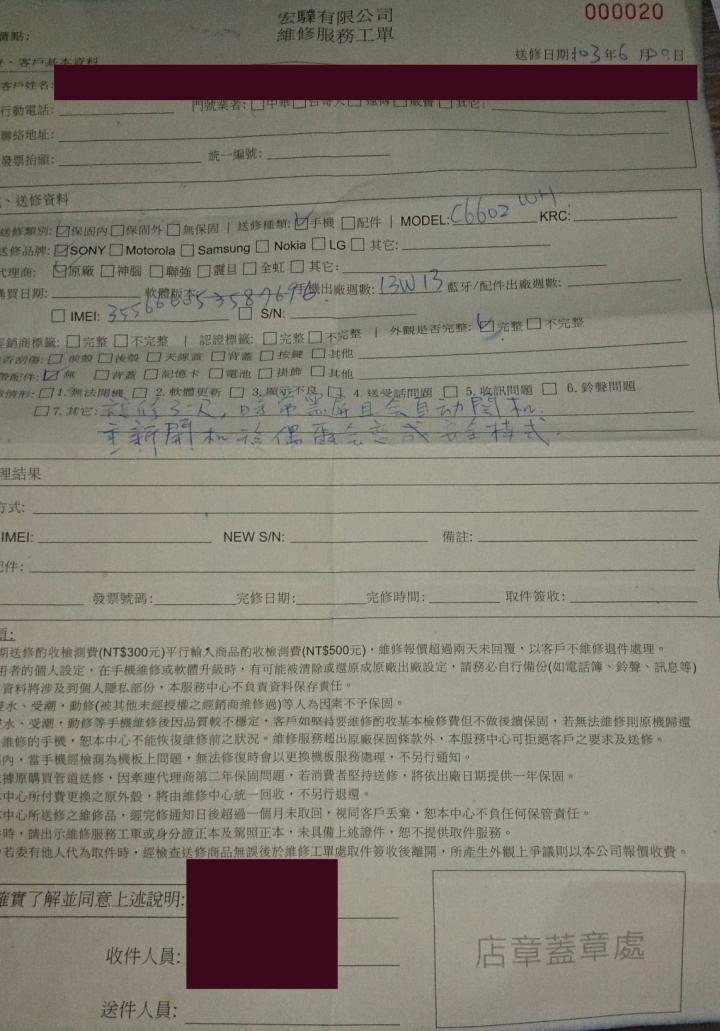 宏驜有限公司
000020
維修服務工單
價點:
送修日期103年6月30日
、客戶基本資料
客戶姓名:
行動電話:
門號業者:□中華□台哥大□遠傳□威寶□其它:
聯絡地址:
發票抬頭: 統一編號:
、送修資料
送修類別:☑保固內□保固外□無保固 | 送修種類:☑手機 □配件 | MODEL:C6602 WH KRC:
送修品牌:☑SONY□Motorola□Samsung□Nokia□LG□其它:
代理商:☑原廠□神腦□聯強□震旦□全虹□其它:
購買日期: 軟體版本 手機出廠週數:13W13 藍牙/配件出廠週數:
□IMEI: □S/N:
經銷商標籤:□完整□不完整 | 認證標籤:□完整□不完整 | 外觀是否完整:☑完整□不完整
是否刮傷:□前殼□後殼□天線蓋□背蓋□按鍵□其他
帶配件:☑無 □背蓋□記憶卡□電池□掛飾□其他
情形:□1.無法開機□2.軟體更新□3.顯示不良□4.送受話問題□5.收訊問題□6.鈴聲問題
□7.其它:報修3次,時常黑屏且會自动関机.
重新開机後偶爾会变成安全模式.
理結果
方式:
IMEI: NEW S/N: 備註:
配件:
發票號碼: 完修日期: 完修時間: 取件簽收:
項:
期送修酌收檢測費(NT$300元)平行輸入商品酌收檢測費(NT$500元),維修報價超過兩天未回覆,以客戶不維修退件處理。
用者的個人設定,在手機維修或軟體升級時,有可能被清除或還原成原廠出廠設定,請務必自行備份(如電話簿、鈴聲、訊息等)
資料將涉及到個人隱私部份,本服務中心不負責資料保存責任。
浸水、受潮,動修(被其他未經授權之經銷商維修過)等人為因素不予保固。
浸水、受潮,動修等手機維修後因品質較不穩定,客戶如堅持要維修酌收基本檢修費但不做後續保固,若無法維修則原機歸還
維修的手機,恕本中心不能恢復維修前之狀況。維修服務超出原廠保固條款外,本服務中心可拒絕客戶之要求及送修。
內,當手機經檢測為機板上問題,無法修復時會以更換機板服務處理,不另行通知。
依據原購買管道送修,因牽連代理商第二年保固問題,若消費者堅持送修,將依出廠日期提供一年保固。
本中心所付費更換之原外殼,將由維修中心統一回收,不另行退還。
本中心所送修之維修品,經完修通知日後超過一個月未取回,視同客戶丟棄,恕本中心不負任何保管責任。
件時,請出示維修服務工單或身分證正本及駕照正本,未具備上述證件,恕不提供取件服務。
若委有他人代為取件時,經檢查送修商品無誤後於維修工單處取件簽收後離開,所產生外觀上爭議則以本公司報價收費。
確實了解並同意上述說明:
收件人員:
店章蓋章處
送件人員: